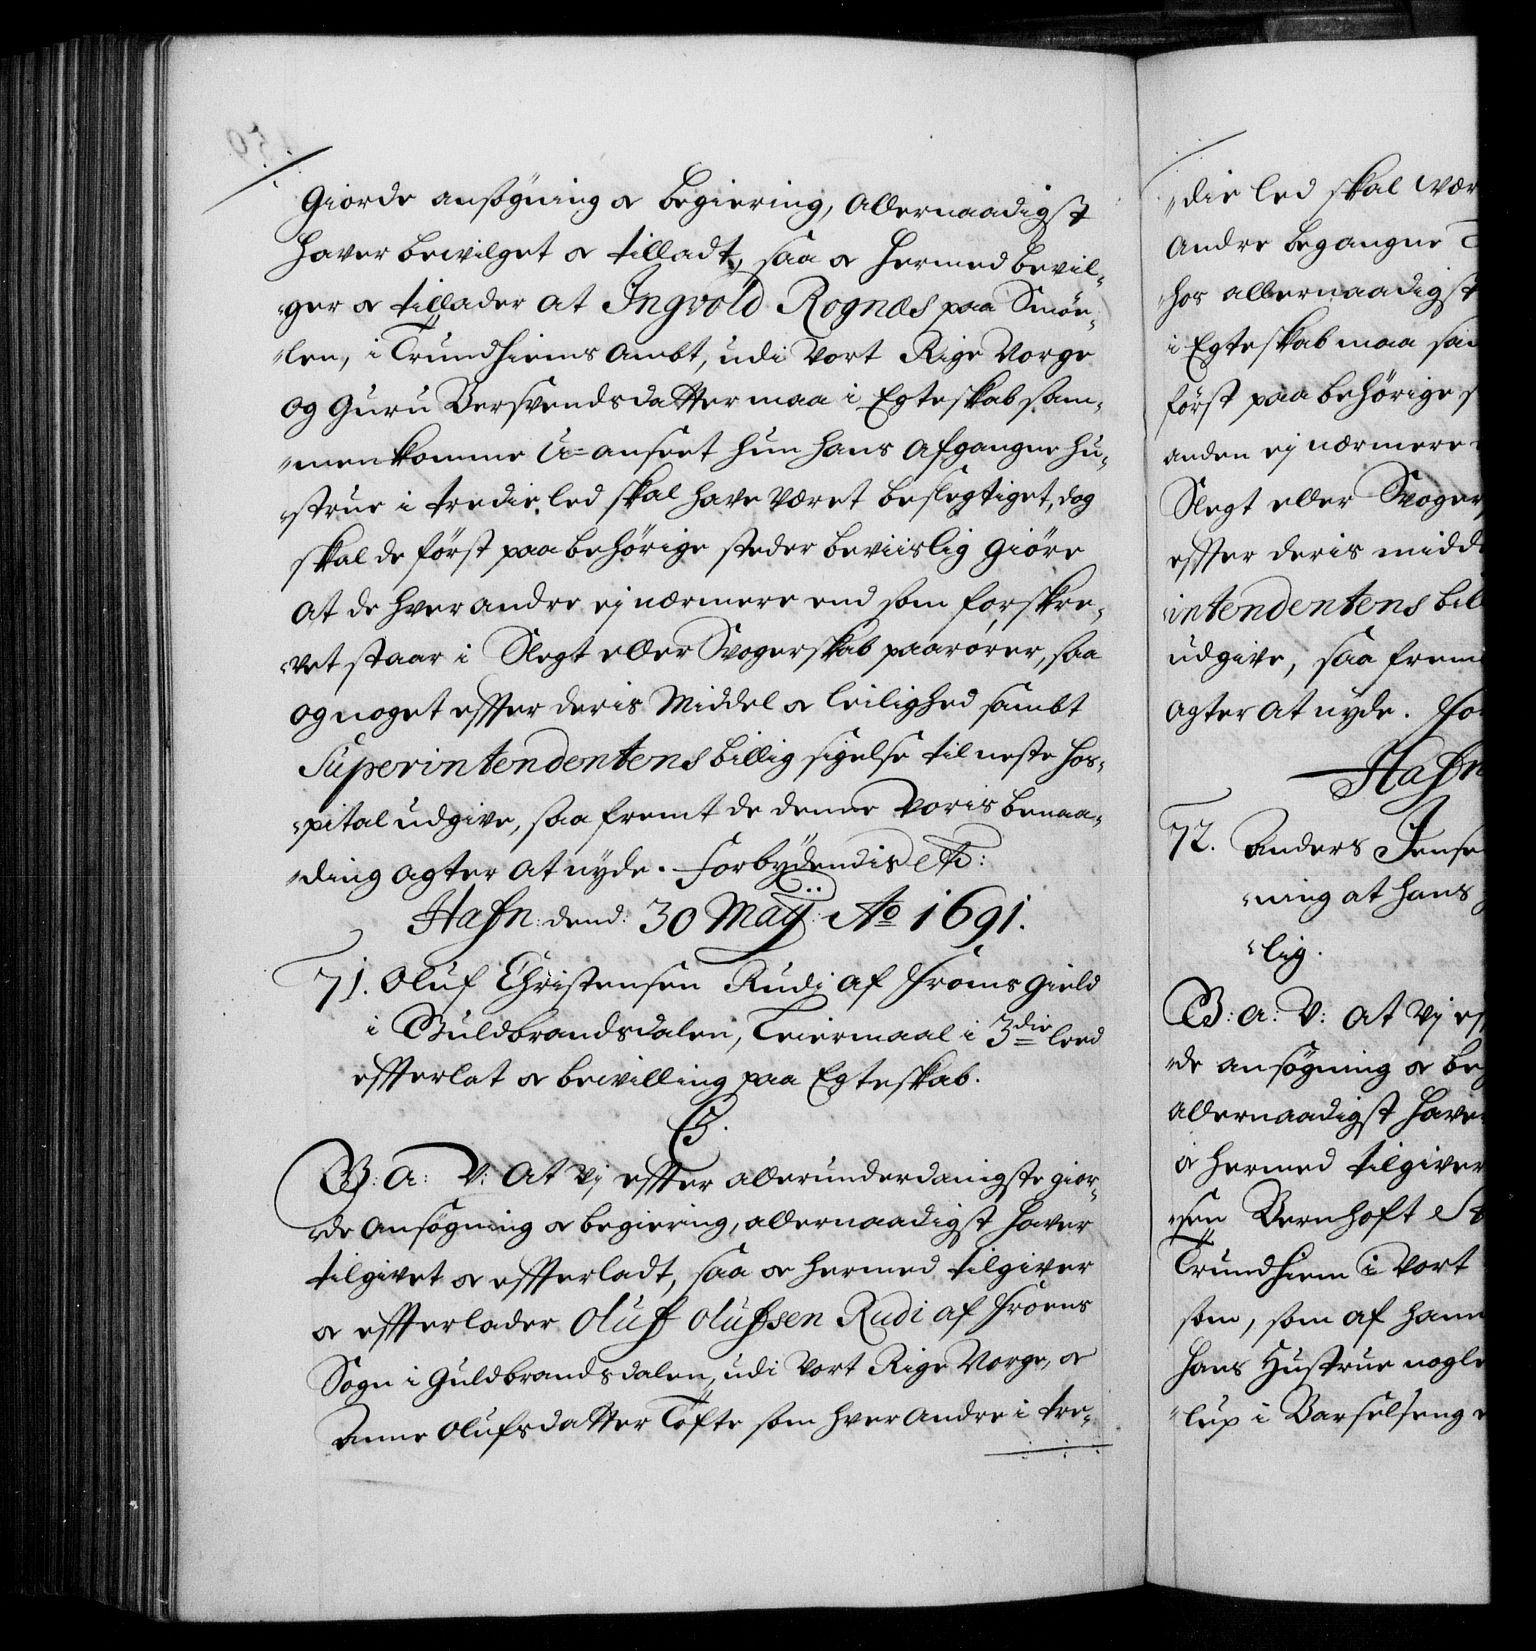 Giorde ansøgning og begiering, allernaadigst
haver bevilget og tilladt, saa og hermed bevil-
ger og tillader at Ingvold Rognæs paa Smøe-
len, i Trundhiems Ambt, udi vort Rige Norge
og Guru Bersvendsdatter maa i Egteskab sam-
menkomme U-anseet hun hans afgangne hu-
strue i tredie led skal have været beslegtiget, dog
skal de først paa behørige steder beviislig giøre
at de hver andre ej nærmere end som forskre-
vet staar i Slegt eller Svogerskab paarører, saa
og noget effter deris Middel og leilighed sambt
Superintendentens billig sigelse til neste Hos-
pital udgive, saa fremt de denne voris benaa-
ding agter at nyde. Forbydendis etc:
Hafn: dend: 30 Maij: Ao 1691.
71. Oluf Christensen Rudi af Froms gield
i Guldbrandsdalen, Leiermaal i 3die leed
effterlat og bevilling paa Egteskab.
C5.
G: A: V: At Vj effter allerunderdanigste gior-
de ansøgning og begiering, allernaadigst haver
tilgivet og effterladt, saa og hermed tilgiver
og effterlader Oluf Olufsen Rudi af Froens
Sogn i Guldbrandsdalen, udi vort Rige Norge, og
Anne Olufsdatter Tofte som hver andre i tre-
die led skal vær
andre begangne
hos allernaadigst
i Egteskab maa sa
først paa behørige s
anden ej nærmere
Slegt eller Svoger
effter deris midd
intendentens bil
udgive, saa frem
agter at nyde. For
Hafn
72. Anders Jense
ning at hans
lig.
G: A: V: At Vj ef
de ansøgning og beg
allernaadigst have
og hermed tilgiver
sen Bernhoft
Trundhiem i vort
som, som af ham
hans Hustrue nogle
lup i Barselseng